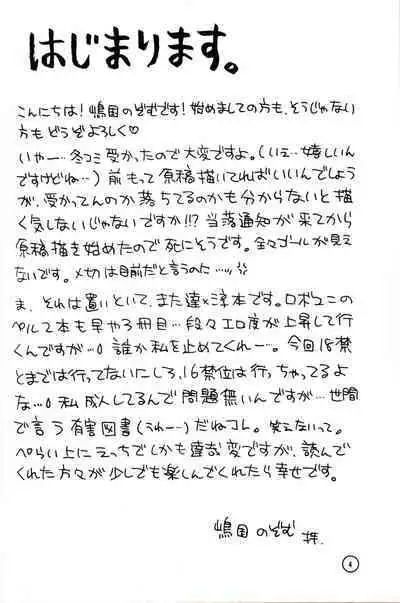 はじまります。
こんにちは！嶋国のぞむです！始めましての方も、そうじゃない
方もどうぞよろしく♡
いやー…冬コミ受かったので大変ですよ。（いえ…嬉しいん
ですけどね…）前もって原稿描いてればいいんでしょう
が、受かってんのか落ちてるのかも分からないと描
く気しないじゃないですか!!? 当落通知が来てから
原稿描き始めたので死にそうです。全々ゴールが見え
ないです。〆切は目前だと言うのに…ッ
ま、それは置いといて、また達×涼本です。ロボユニの
ペルソナ本も早や3冊目…段々エロ度が上昇して行
くんですが…。誰か私を止めてくれー。今回18禁
とまでは行ってないにしろ、16禁位は行っちゃってるよ
な…。私成人してるんで問題無いんですが…世間
で言う有害図書（うれー…）だねコレ。笑えないって。
ぺらい上にえっちでしかも達が変ですが、読んで
くれた方々が少しでも楽しんでくれたら幸せです。
嶋国のぞむ 拝.
4